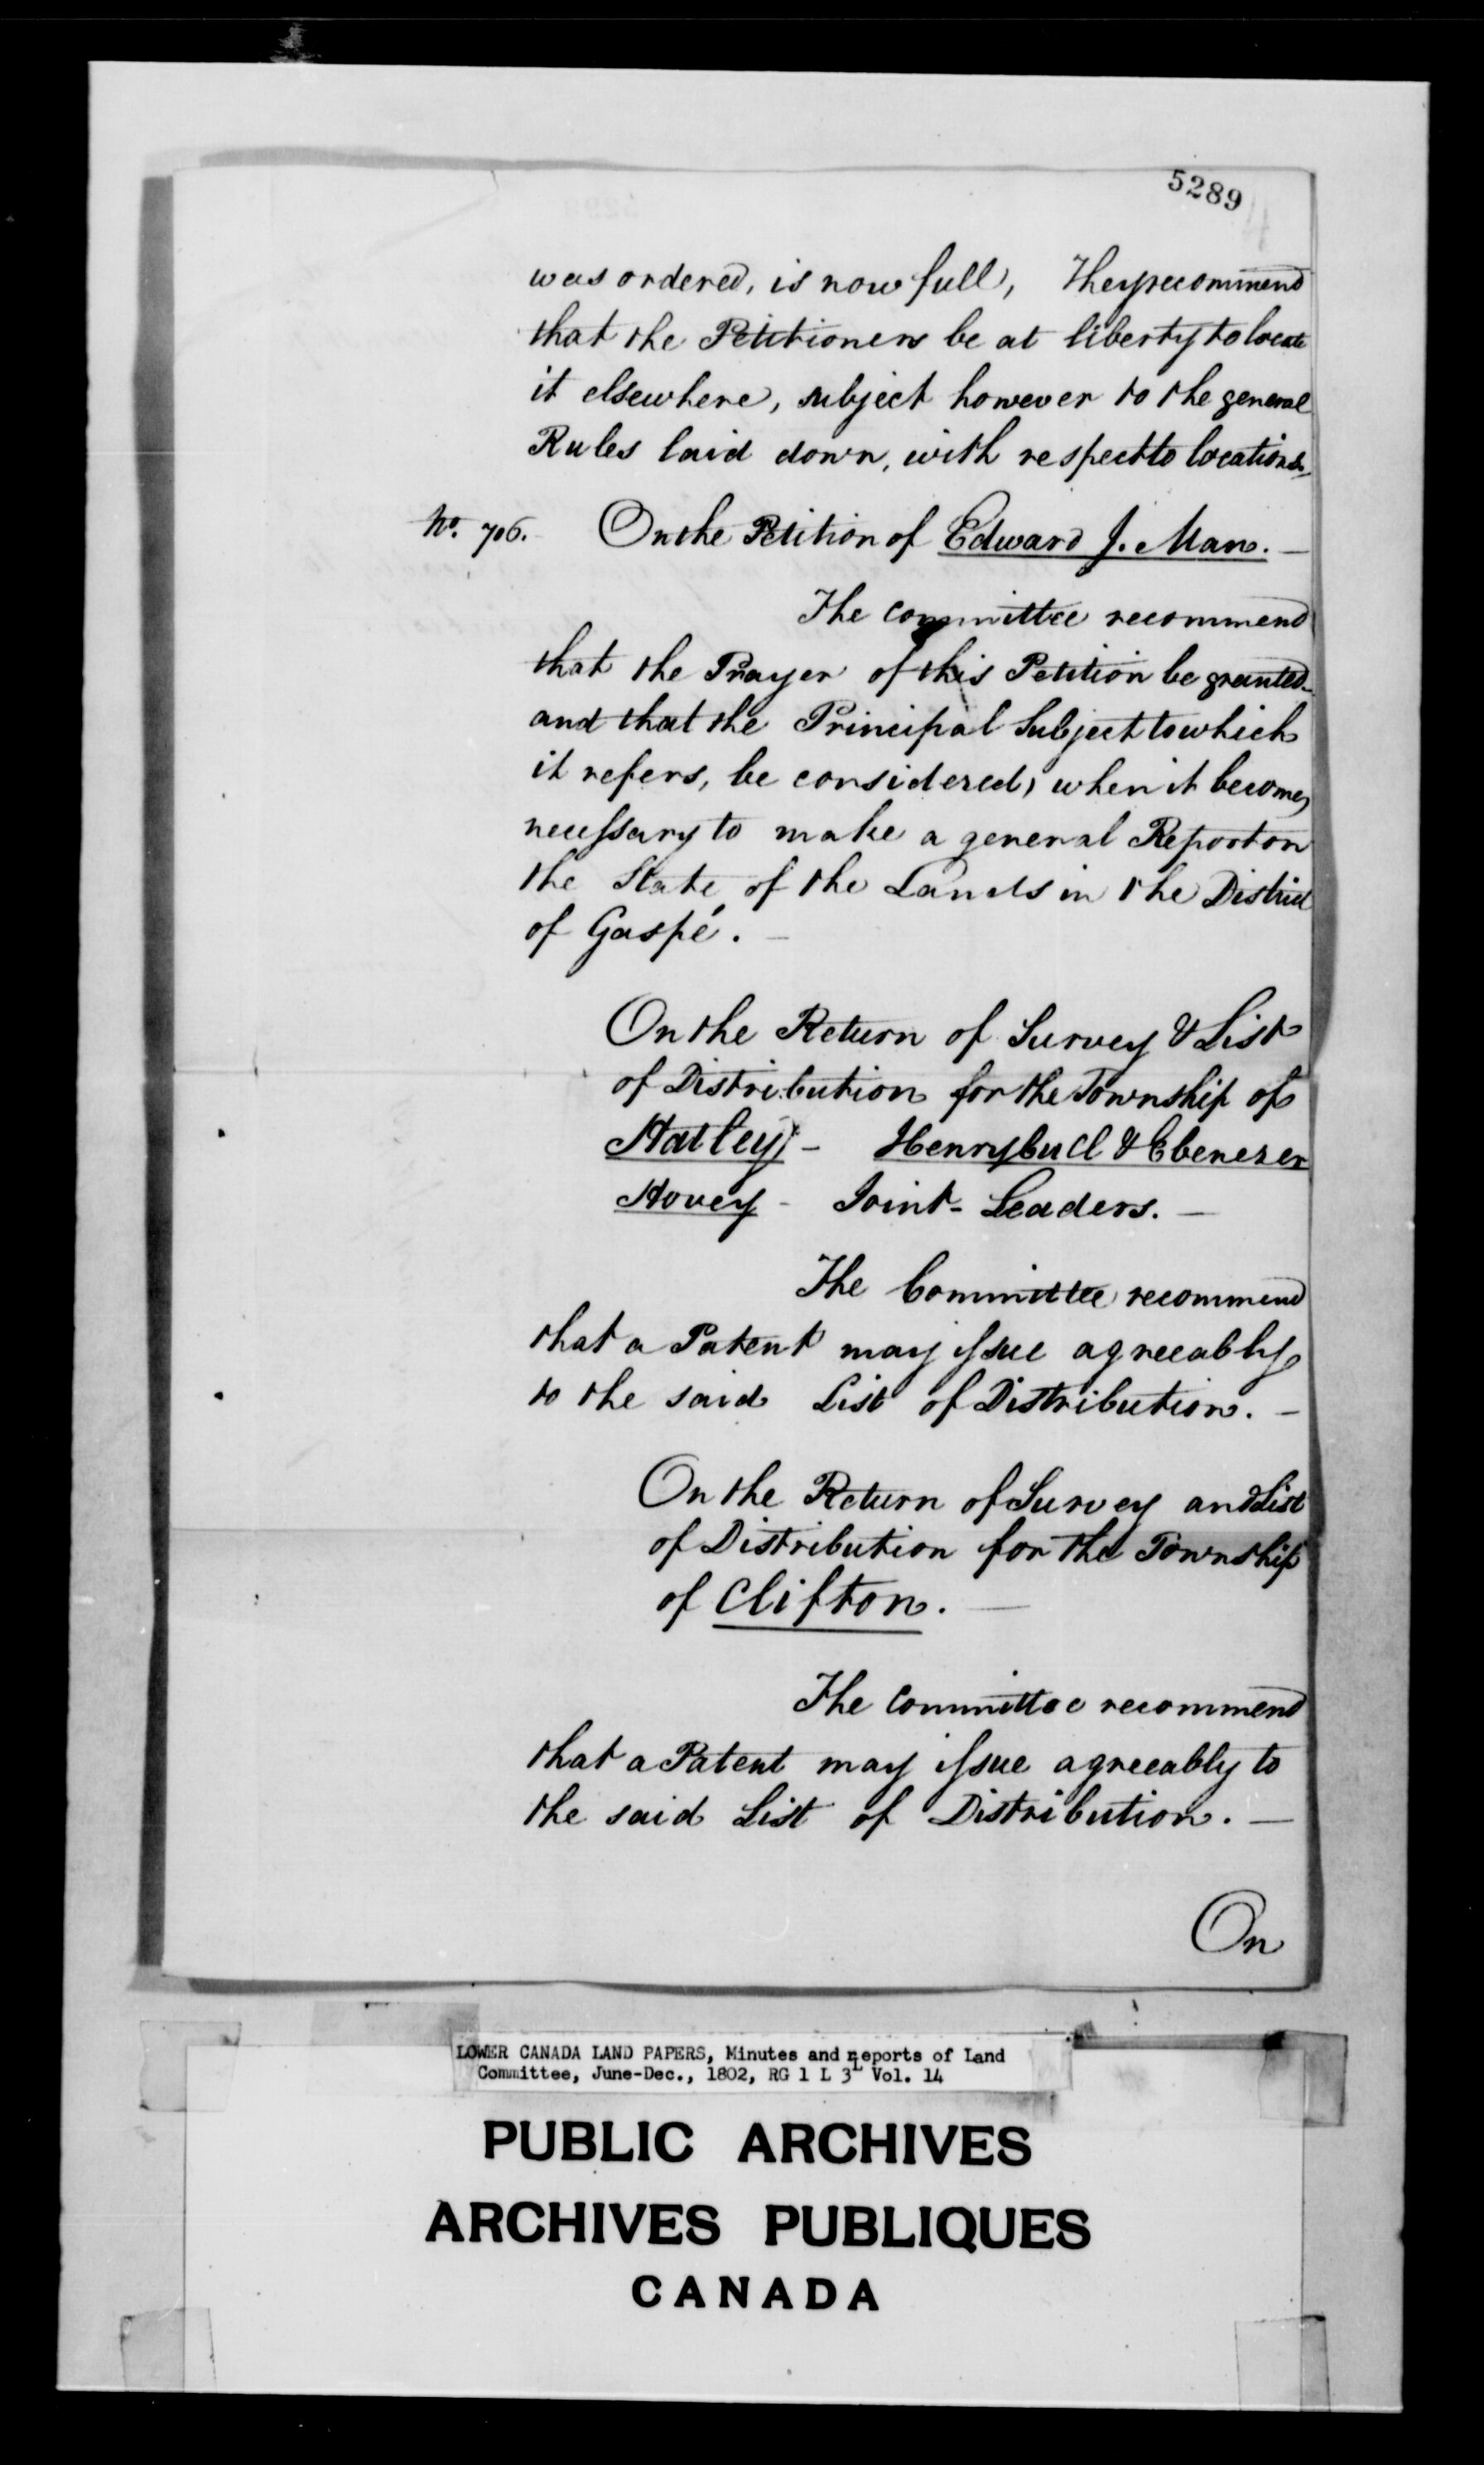 5289
was ordered, is now full, They recommend
that the Petitioners be at liberty to locate
it elsewhere, subject however to the general
Rules laid down, with respect to locations.
No. 706. On the Petition of Edward J. Man. —
The committee recommend
that the Prayer of this Petition be granted
and that the Principal Subject to which
it refers, be considered, when it becomes
necessary to make a general Report on
the State of the Lands in the District
of Gaspé. —
On the Return of Survey & List
of Distribution for the Township of
Hatley - Henry Cull & Ebenezer
Hovey - Joint-Leaders. —
The Committee recommend
that a Patent may issue agreeably
to the said List of Distribution. —
On the Return of Survey and List
of Distribution for the Township
of Clifton. —
The Committee recommend
that a Patent may issue agreeably to
the said List of Distribution. —
On
LOWER CANADA LAND PAPERS, Minutes and Reports of Land
Committee, June-Dec., 1802, RG 1 L 3L Vol. 14
PUBLIC ARCHIVES
ARCHIVES PUBLIQUES
CANADA